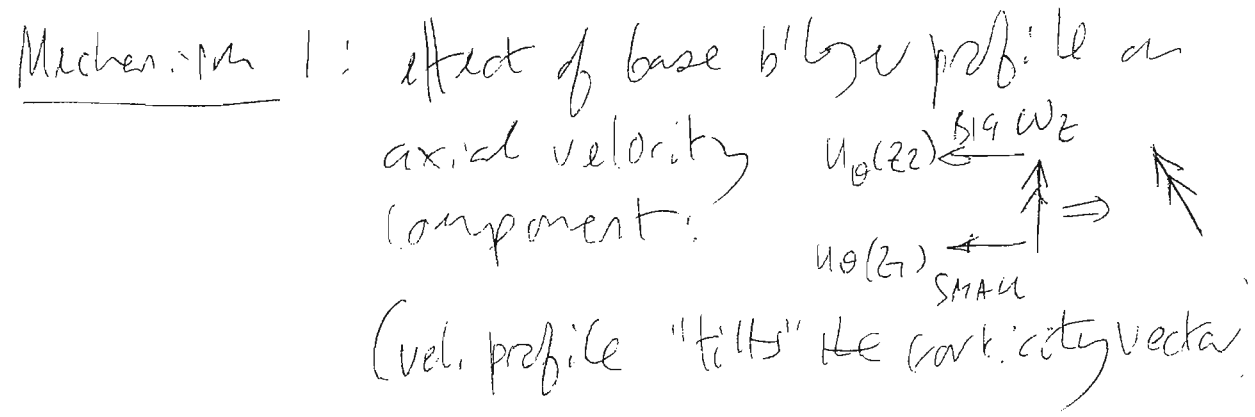 Mechanism 1: effect of base b'layer profile on
axial velocity
component.
u_θ(z2) BIG ω_z
⇒
u_θ(z1) SMALL
(vel. profile "tilts" the vorticity vector